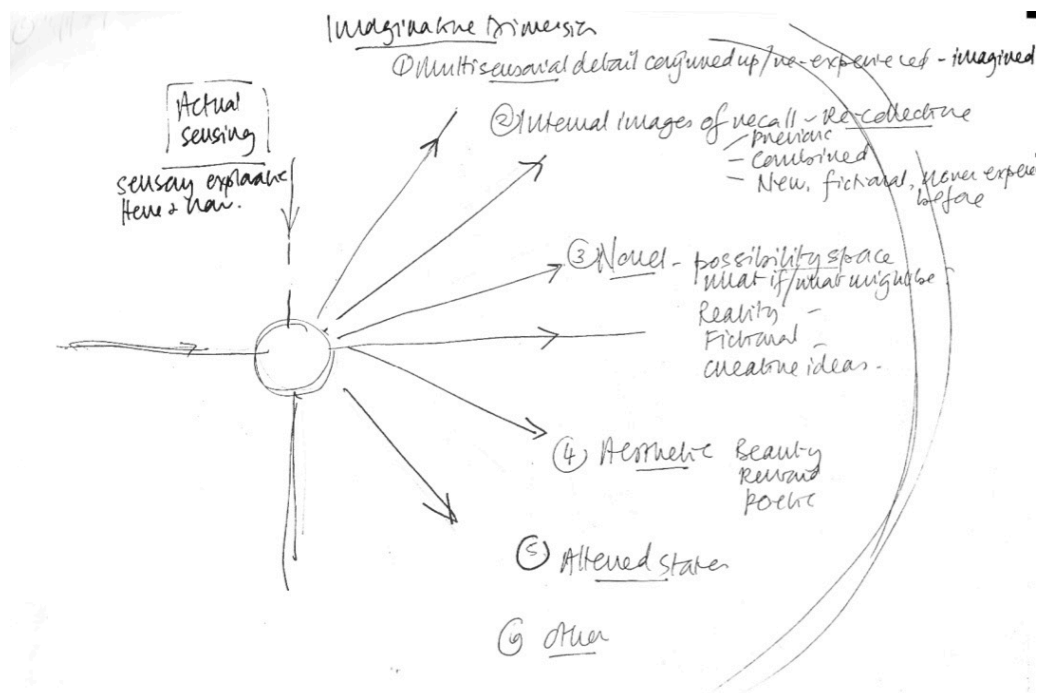 Imaginative Dimension
① Multisensorial detail conjured up/re-experienced - imagined
Actual
sensing
sensory
Here & now.
② Internal images of recall - Re-collective
previous
- Combined
- New, fictional, never
before
③ Novel - possibility space
what if/what might be
Reality -
Fictional -
creative ideas.
④ Aesthetic Beauty
Reward
poetic
⑤ Altered States
⑥ other